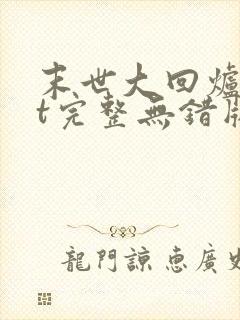 末世大回爐
t完整無錯
龍門諒惠廣